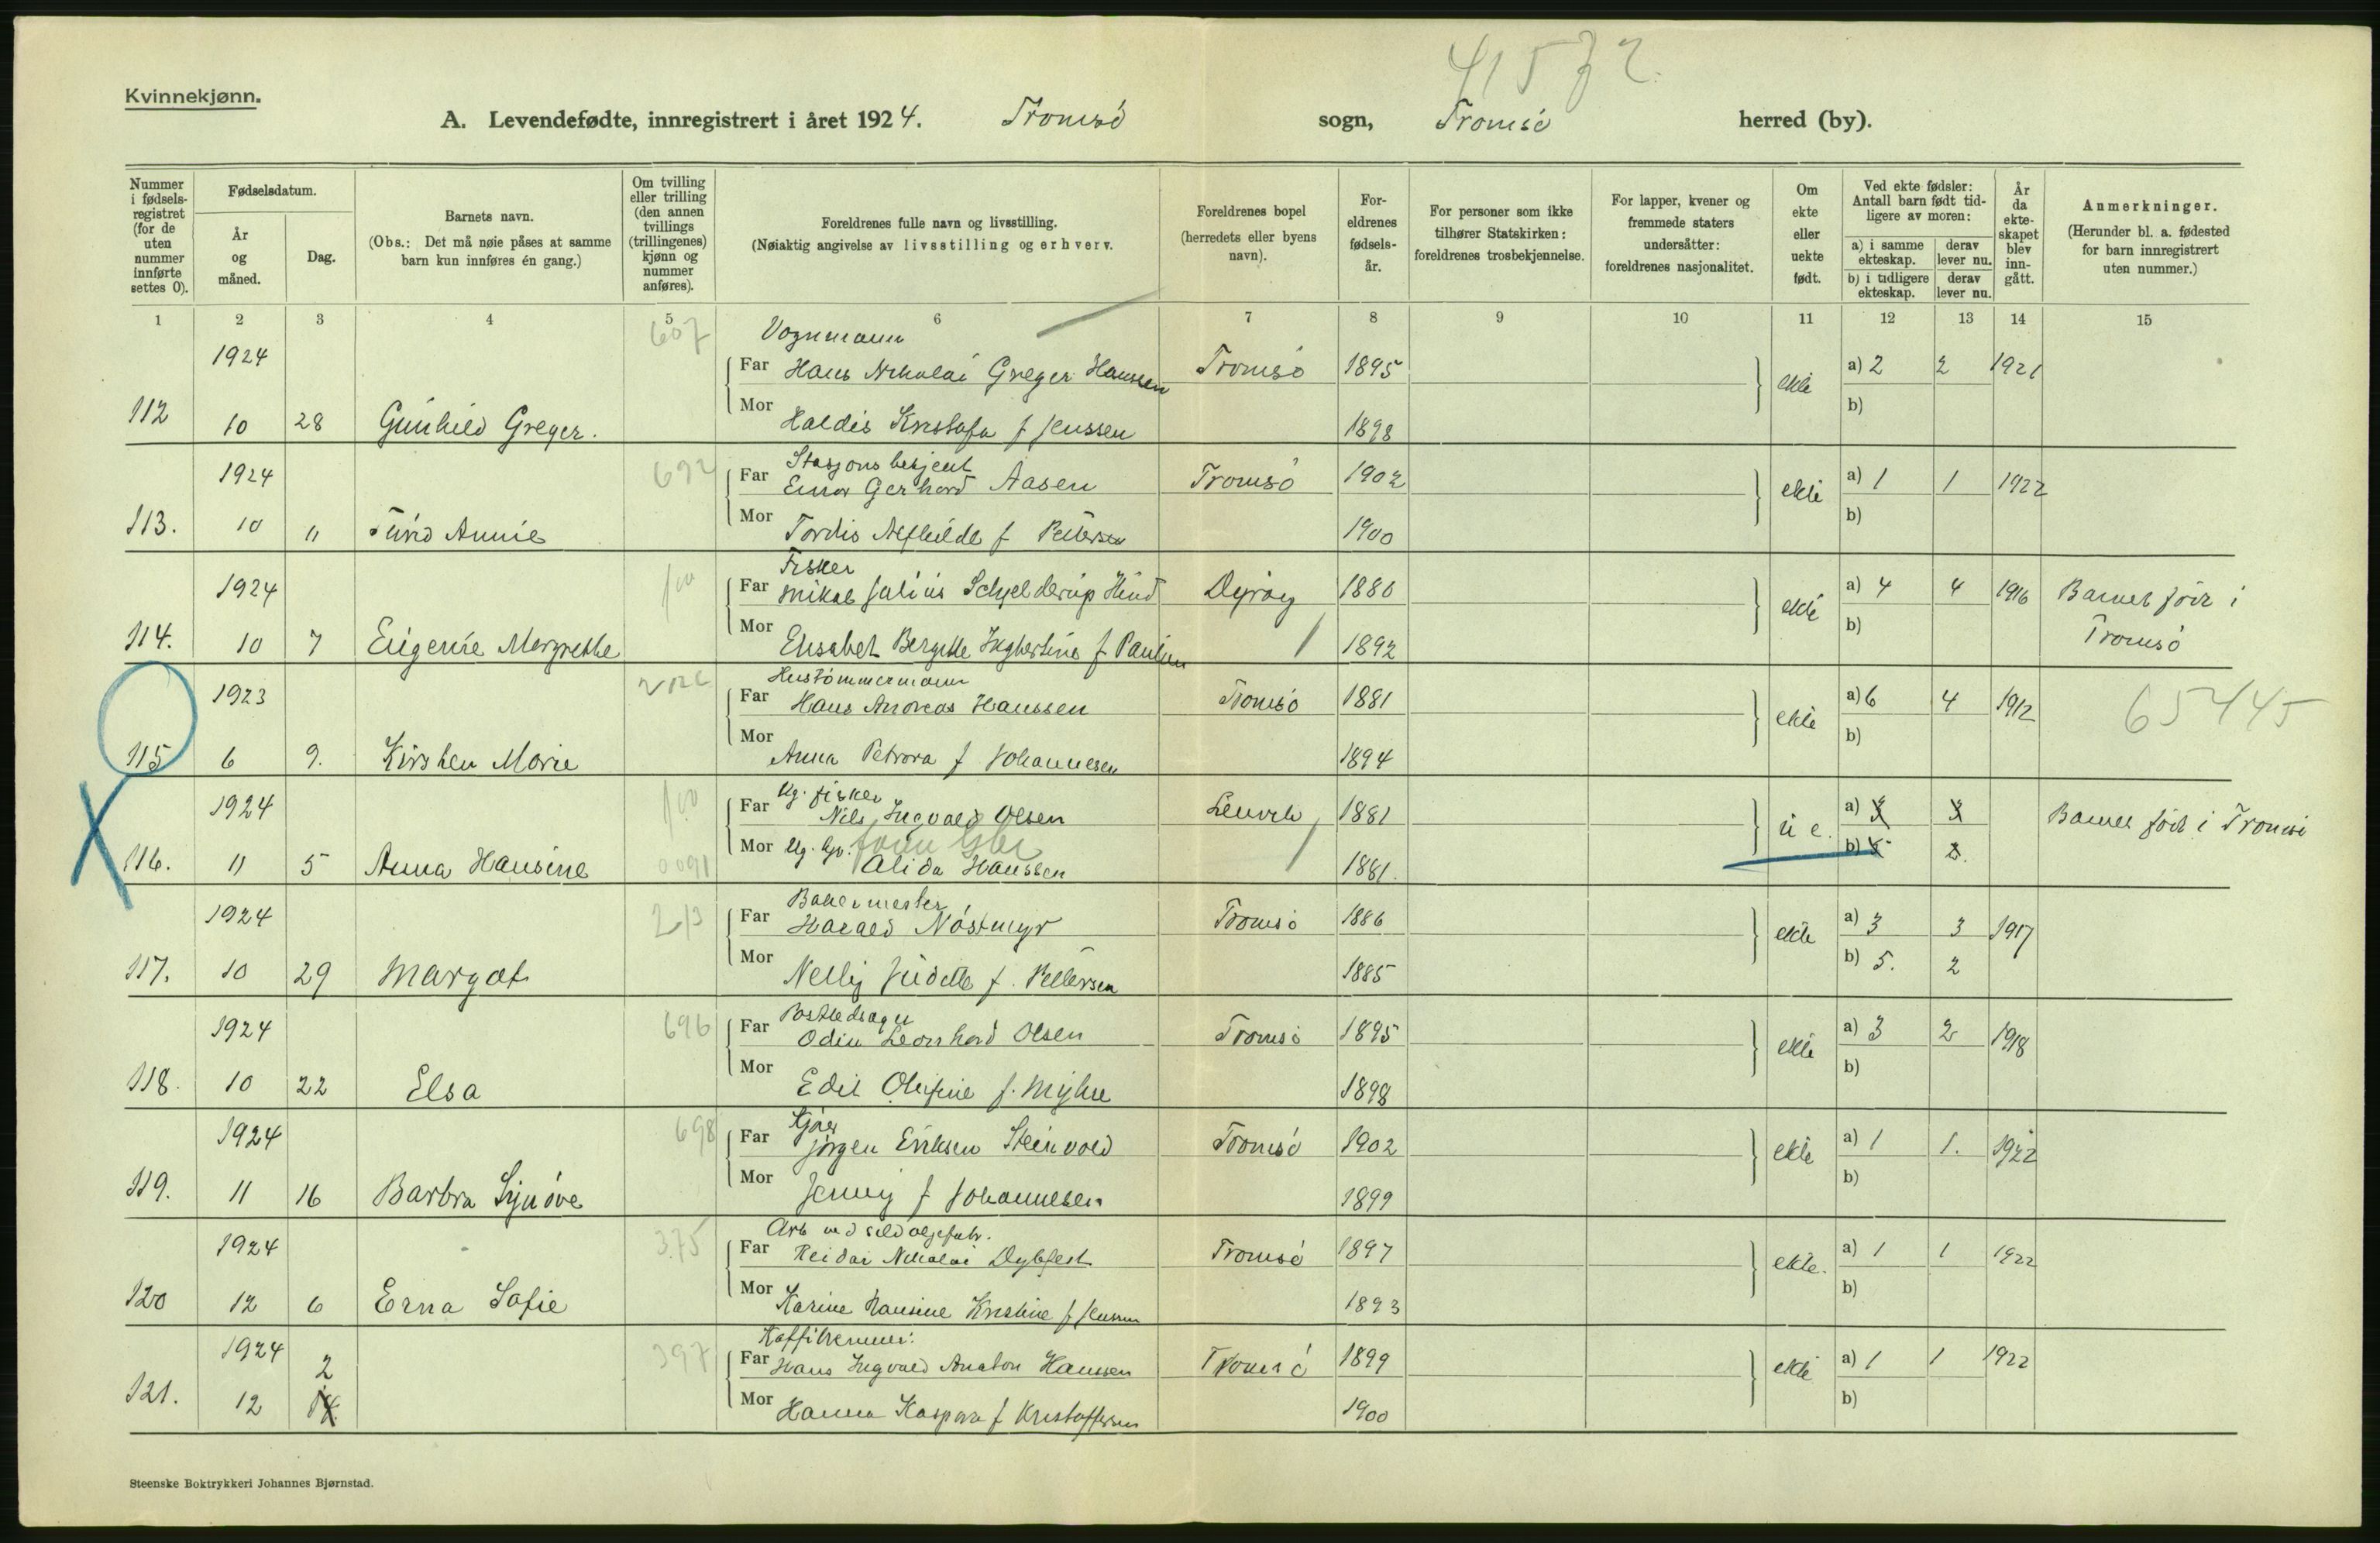 41572.
Kvinnekjønn.
A. Levendefødte, innregistrert i året 1924. Tromsö sogn, Tromsö herred (by).
Nummer i fødsels-registret (for de uten nummer innførte settes 0).
Fødselsdatum.
År og måned.
Dag.
Barnets navn.
(Obs.: Det må nøie påses at samme barn kun innføres én gang.)
Om tvilling eller trilling (den annen tvillings (trillingenes) kjønn og nummer anføres).
Foreldrenes fulle navn og livsstilling.
(Nøiaktig angivelse av livsstilling og erhverv.
Foreldrenes bopel (herredets eller byens navn).
For-eldrenes fødsels-år.
For personer som ikke tilhører Statskirken: foreldrenes trosbekjennelse.
For lapper, kvener og fremmede staters undersåtter: foreldrenes nasjonalitet.
Om ekte eller uekte født.
Ved ekte fødsler: Antall barn født tid-ligere av moren:
a) i samme ekteskap.
derav lever nu.
b) i tidligere ekteskap.
derav lever nu.
År da ekte-skapet blev inn-gått.
Anmerkninger.
(Herunder bl. a. fødested for barn innregistrert uten nummer.)
1 2 3 4 5 6 7 8 9 10 11 12 13 14 15
607 Vognmann
1924 Far Hans Nikolai Greger Hanssen Tromsö 1895 ekte a) 2 2 1921
112 10 28 Gunhild Greger. Mor Haldis Kristofa f Jenssen 1898 b)
692 Stasjonsbetjent
1924 Far Einar Gerhard Aasen Tromsö 1902 ekte a) 1 1 1922
113. 10 11 Turid Annie Mor Tordis Alfhilde f Pettersen 1900 b)
Fisker
1924 Far Mikal Julius Schjelderup Hind Dyröy 1880 ekte a) 4 4 1916 Barnet född i
114. 10 7 Eugenie Margrethe Mor Elisabet Bergitte Ingbertine f Paulsen 1892 b) Tromsö
Hustömmermann
1923 Far Hans Andreas Hanssen Tromsö 1881 ekte a) 6 4 1912 65445
115 6 9. Kirsten Marie Mor Anna Petrora f Johannesen 1894 b)
Ug. fisker
1924 Far Nils Ingvald Olsen Lenvik 1881 u e. a) 3 3 Barnet född i Tromsö
116. 11 5 Anna Hansine 0091 Mor Ug. Alida Hanssen 1881. b) 5 2.
213 Bakermester
1924 Far Harald Nöstmyr Tromsö 1886 ekte a) 3 3 1917
117. 10 29 Margot Mor Nelly Judette f. Pettersen 1885 b) 5. 2
696
1924 Far Odin Leonhard Olsen Tromsö 1895 ekte a) 3 2 1918
118. 10 22 Elsa Mor Edit Olufine f. Myhre 1898 b)
698
1924 Far Jörgen Eriksen Steinvold Tromsö 1902 ekte a) 1 1. 1922
119. 11 16 Barbra Synöve Mor Jenny f Johannesen 1899 b)
375 Arb ved sildoljefabr.
1924 Far Reidar Nikolai Dybfest Tromsö 1897 ekte. a) 1 1 1922
120 12 6 Erna Sofie Mor Karine Hansine Kristine f Jensen 1893 b)
397
1924 2 Far Hans Ingvald Anaton Hanssen Tromsö 1899 ekte a) 1 1 1922
121. 12 Mor Hanna Kaspara f Kristoffersen 1900 b)
Steenske Boktrykkeri Johannes Bjørnstad.